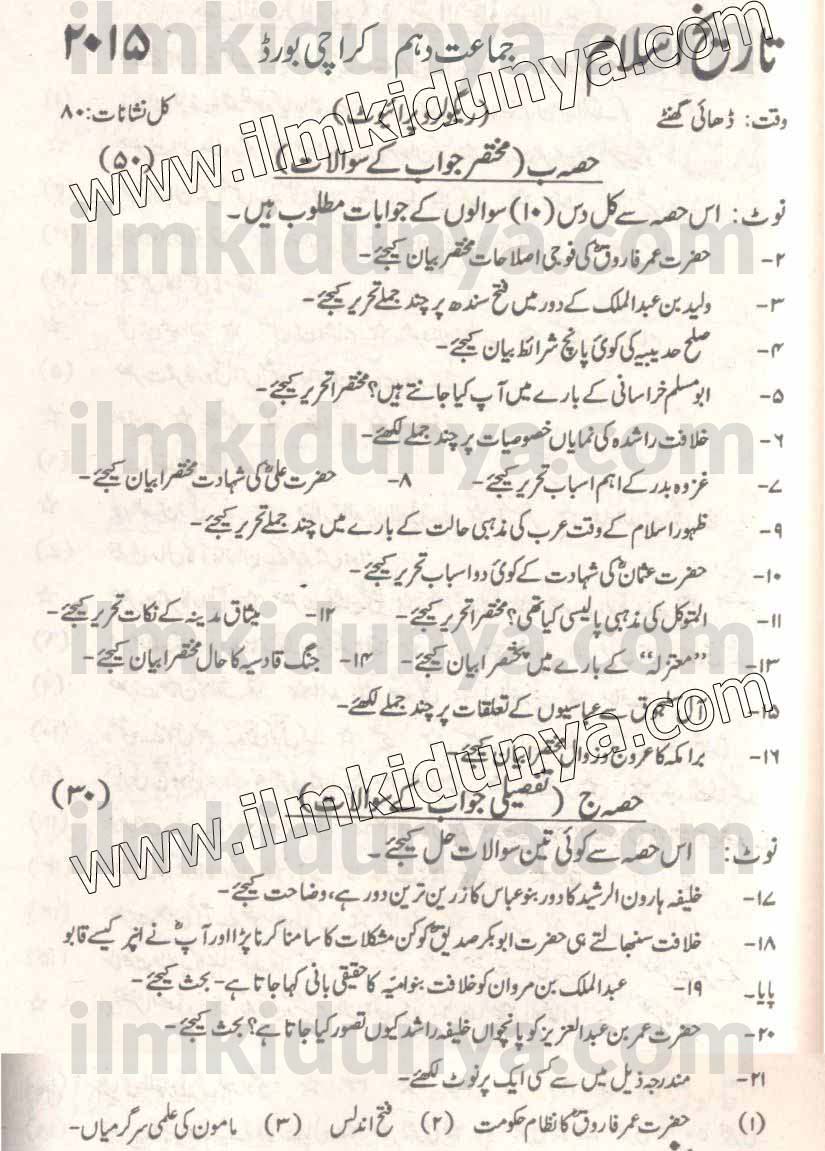 تاریخ اسلام جماعت دہم کراچی بورڈ ۲۰۱۵
وقت: ڈھائی گھنٹے (ریگولر و پرائیوٹ) کل نشانات: ۸۰
حصہ ب (مختصر جواب کے سوالات) (۵۰)
نوٹ: اس حصہ سے کل دس (۱۰) سوالوں کے جوابات مطلوب ہیں۔
۲- حضرت عمر فاروقؓ کی فوجی اصلاحات مختصر بیان کیجئے-
۳- ولید بن عبد الملک کے دور میں فتح سندھ پر چند جملے تحریر کیجئے-
۴- صلح حدیبیہ کی کوئی پانچ شرائط بیان کیجئے-
۵- ابو مسلم خراسانی کے بارے میں آپ کیا جانتے ہیں؟ مختصراً تحریر کیجئے-
۶- خلافت راشدہ کی نمایاں خصوصیات پر چند جملے لکھئے-
۷- غزوہ بدر کے اہم اسباب تحریر کیجئے- ۸- حضرت علیؓ کی شہادت مختصراً بیان کیجئے-
۹- ظہور اسلام کے وقت عرب کی مذہبی حالت کے بارے میں چند جملے تحریر کیجئے-
۱۰- حضرت عثمانؓ کی شہادت کے کوئی دو اسباب تحریر کیجئے-
۱۱- المتوکل کی مذہبی پالیسی کیا تھی؟ مختصراً تحریر کیجئے- ۱۲- میثاق مدینہ کے نکات تحریر کیجئے-
۱۳- ”معتزلہ“ کے بارے میں مختصراً بیان کیجئے- ۱۴- جنگ قادسیہ کا حال مختصراً بیان کیجئے-
۱۵- آل سلجوق سے عباسیوں کے تعلقات پر چند جملے لکھئے-
۱۶- برامکہ کا عروج و زوال مختصراً بیان کیجئے-
حصہ ج (تفصیلی جواب کے سوالات) (۳۰)
نوٹ: اس حصہ سے کوئی تین سوالات حل کیجئے۔
۱۷- خلیفہ ہارون الرشید کا دور بنو عباس کا زرین ترین دور ہے، وضاحت کیجئے-
۱۸- خلافت سنبھالتے ہی حضرت ابوبکر صدیقؓ کو کن مشکلات کا سامنا کرنا پڑا اور آپؓ نے انپر کیسے قابو
پایا- ۱۹- عبد الملک بن مروان کو خلافت بنو امیہ کا حقیقی بانی کہا جاتا ہے- بحث کیجئے-
۲۰- حضرت عمر بن عبد العزیز کو پانچواں خلیفہ راشد کیوں تصور کیا جاتا ہے؟ بحث کیجئے-
۲۱- مندرجہ ذیل میں سے کسی ایک پر نوٹ لکھئے-
(۱) حضرت عمر فاروقؓ کا نظام حکومت (۲) فتح اندلس (۳) مامون کی علمی سرگرمیاں-
ilmkidunya.com
www.ilmkidunya.com
ilmkidunya.com
ilmkidunya.com
ilmkidunya.com
ilmkidunya.com
www.ilmkidunya.com
ilmkidunya.com
ilmkidunya.com
ilmkidunya.com